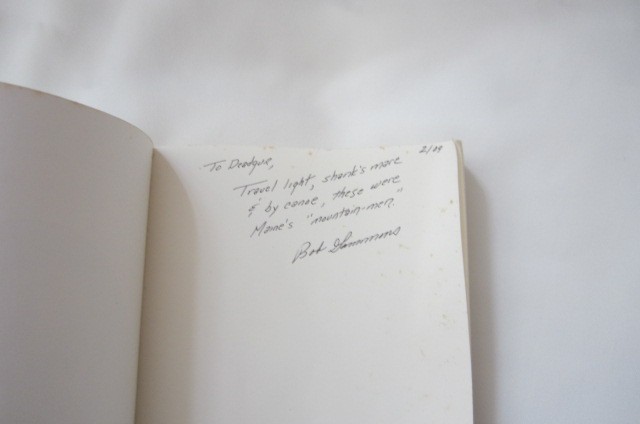 2/89
To
Travel light, shank's mare
& by canoe, these were
Maine's "mountain-men."
Bob